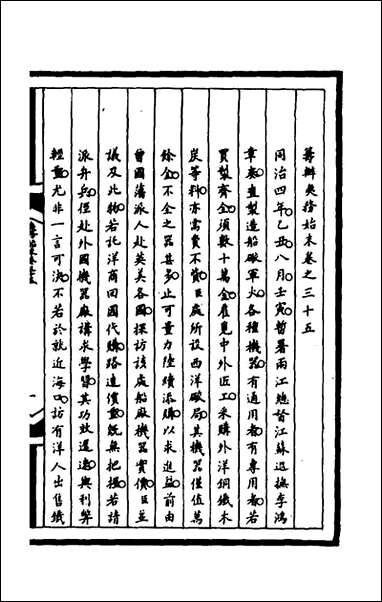 籌辦夷務始末卷之三十五
同治四年乙丑八月壬寅暫署兩江總督江蘇巡撫李鴻
章奏查製造船礮軍火各種機器有通用者有專用者若
買製齊全須數十萬金雇覓中外匠工采購外洋銅鐵木
炭等料亦需費不貲臣處所設西洋礮局其機器僅值萬
餘金不全之器甚多止可量力陸續添購以求進益前由
曾國藩派人赴英美各國探訪該處船廠機器實價臣並
議及此物若託洋商回國代購路遠價重旣無把握若請
派弁兵徑赴外國機器廠講求學習其功效遲速與利弊
輕重尤非一言可決不若於就近海口訪有洋人出售鐵